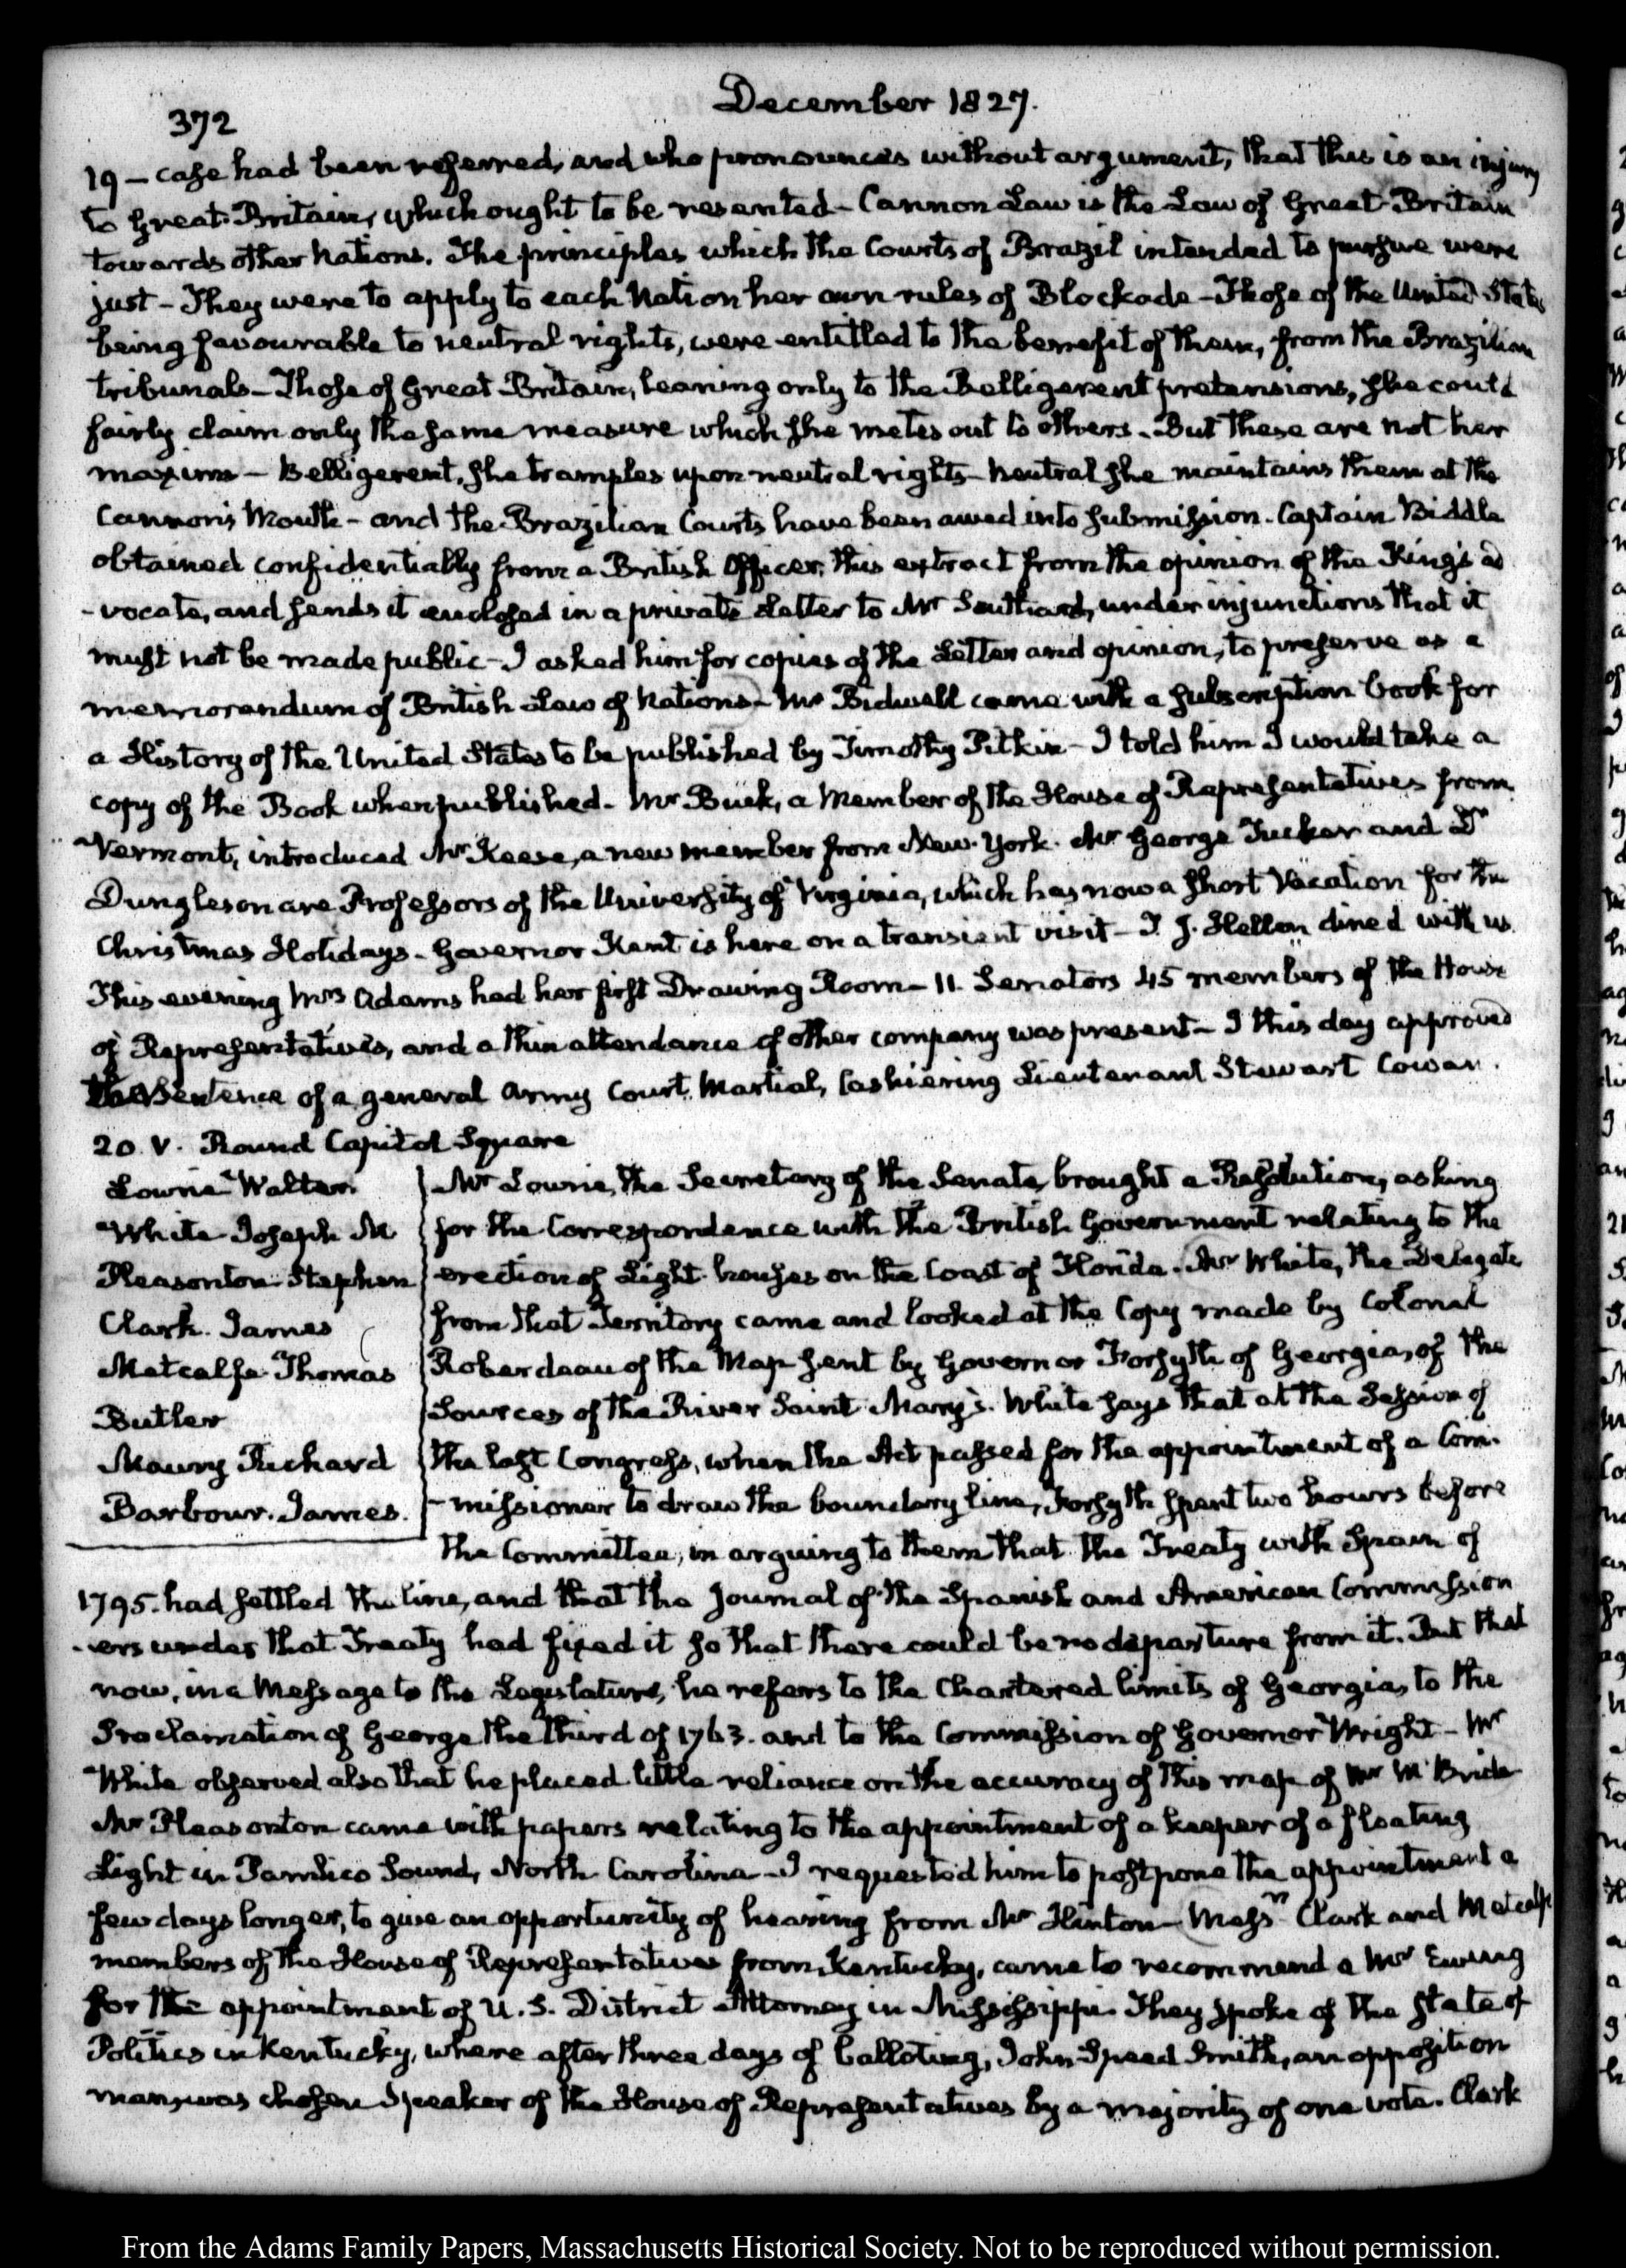 December 1827.
372
19 – case had been referred, and who pronounces without argument, that this is an injury
to Great-Britain, which ought to be resented – Cannon Law is the Law of Great-Britain
towards other Nations. The principles which the Courts of Brazil intended to pursue were
just – They were to apply to each Nation her own rules of Blockade – Those of the United States
being favourable to neutral rights, were entitled to the benefit of them, from the Brazilian
tribunals – Those of Great Britain, leaning only to the Belligerent pretensions, she could
fairly claim only the same measure which she metes out to others. But these are not her
maxims – Belligerent, she tramples upon neutral rights – Neutral she maintains them at the
Cannon's Mouth – and the Brazilian Courts have been awed into submission. Captain Biddle
obtained confidentially from a British Officer, this extract from the opinion of the King's ad
-vocate, and sends it enclosed in a private Letter to Mr Southard, under injunctions that it
must not be made public – I asked him for copies of the Letter and opinion, to preserve as a
memorandum of British Law of Nations – Mr Bidwell came with a subscription book for
a History of the United States to be published by Timothy Pitkin – I told him I would take a
copy of the Book when published. Mr Buck, a Member of the House of Representatives from
Vermont, introduced Mr Keese, a new member from New-York. Mr George Tucker and Dr
Dungleson are Professors of the University of Virginia, which has now a short Vacation for the
Christmas Holidays. Governor Kent is here on a transient visit – T. J. Hellen dined with us.
This evening Mrs Adams had her first Drawing Room – 11. Senators 45 members of the House
of Representatives, and a thin attendance of other company was present – I this day approved
the Sentence of a general Army Court Martial, Cashiering Lieutenant Stewart Cowan.
20. V. Round Capitol Square
Lowrie Walter
White Joseph M
Pleasonton Stephen
Clark. James
Metcalfe Thomas
Butler
Maury Richard
Barbour. James.
Mr Lowrie, the Secretary of the Senate, brought a Resolution, asking
for the Correspondence with the British Government relating to the
erection of Light-houses on the Coast of Florida. Mr White, the Delegate
from that Territory came and looked at the Copy made by Colonel
Roberdeau of the Map sent by Governor Forsyth of Georgia, of the
Sources of the River Saint Mary's. White says that at the Session of
the last Congress, when the Act passed for the appointment of a Com-
-missioner to draw the boundary line, Forsyth spent two hours before
the Committee, in arguing to them that the Treaty with Spain of
1795. had settled the line, and that the Journal of the Spanish and American Commission
-ers under that Treaty had fixed it so that there could be no departure from it. But that
now, in a Message to the Legislature, he refers to the Chartered limits of Georgia, to the
Proclamation of George the third of 1763. and to the Commission of Governor Wright – Mr
White observed also that he placed little reliance on the accuracy of this map of Mr McBride
Mr Pleasonton came with papers relating to the appointment of a keeper of a floating
Light in Pamlico Sound, North Carolina – I requested him to postpone the appointment a
few days longer, to give an opportunity of hearing from Mr Hinton – Messrs Clark and Metcalfe
members of the House of Representatives from Kentucky, came to recommend a Mr Ewing
for the appointment of U. S. District Attorney in Mississippi. They spoke of the State of
Politics in Kentucky, where after three days of balloting, John Speed Smith, an opposition
man, was chosen Speaker of the House of Representatives by a majority of one vote. Clark
From the Adams Family Papers, Massachusetts Historical Society. Not to be reproduced without permission.